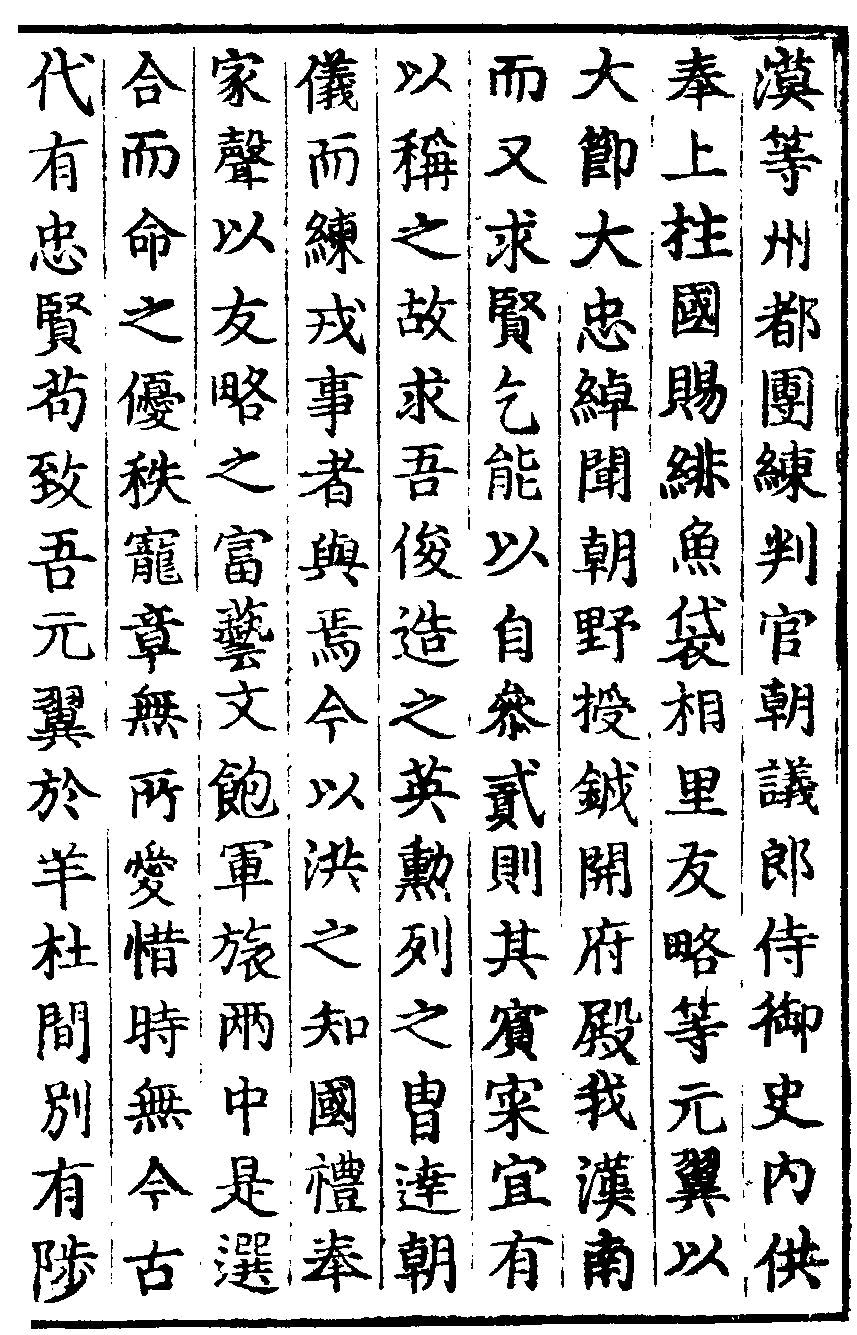 漠等州都團練判官朝議郎侍御史內供
奉上柱國賜緋魚袋相里友略等元翼以
大節大忠綽聞朝野授鉞開府殿我漢南
而又求賢乞能以自叅貳則其賓寀宜有
以稱之故求吾俊造之英勲列之胄達朝
儀而練戎事者與焉今以洪之知國禮奉
家聲以友略之富藝文飽軍旅兩中是選
合而命之優秩寵章無所愛惜時無今古
代有忠賢苟致吾元翼於羊杜間別有陟